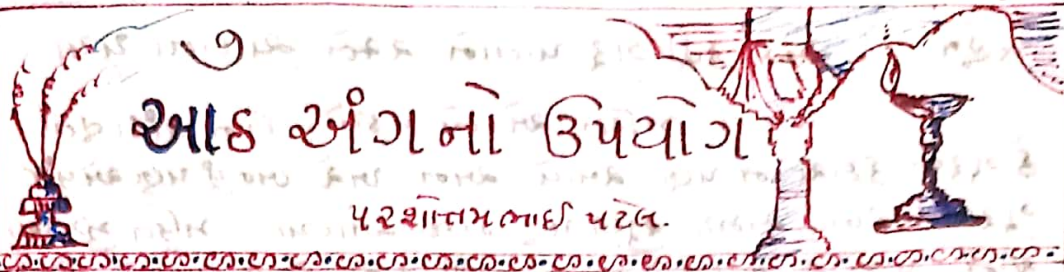 ૭
આઠ અંગનો ઉપયોગ
પરશોત્તમભાઈ પટેલ.